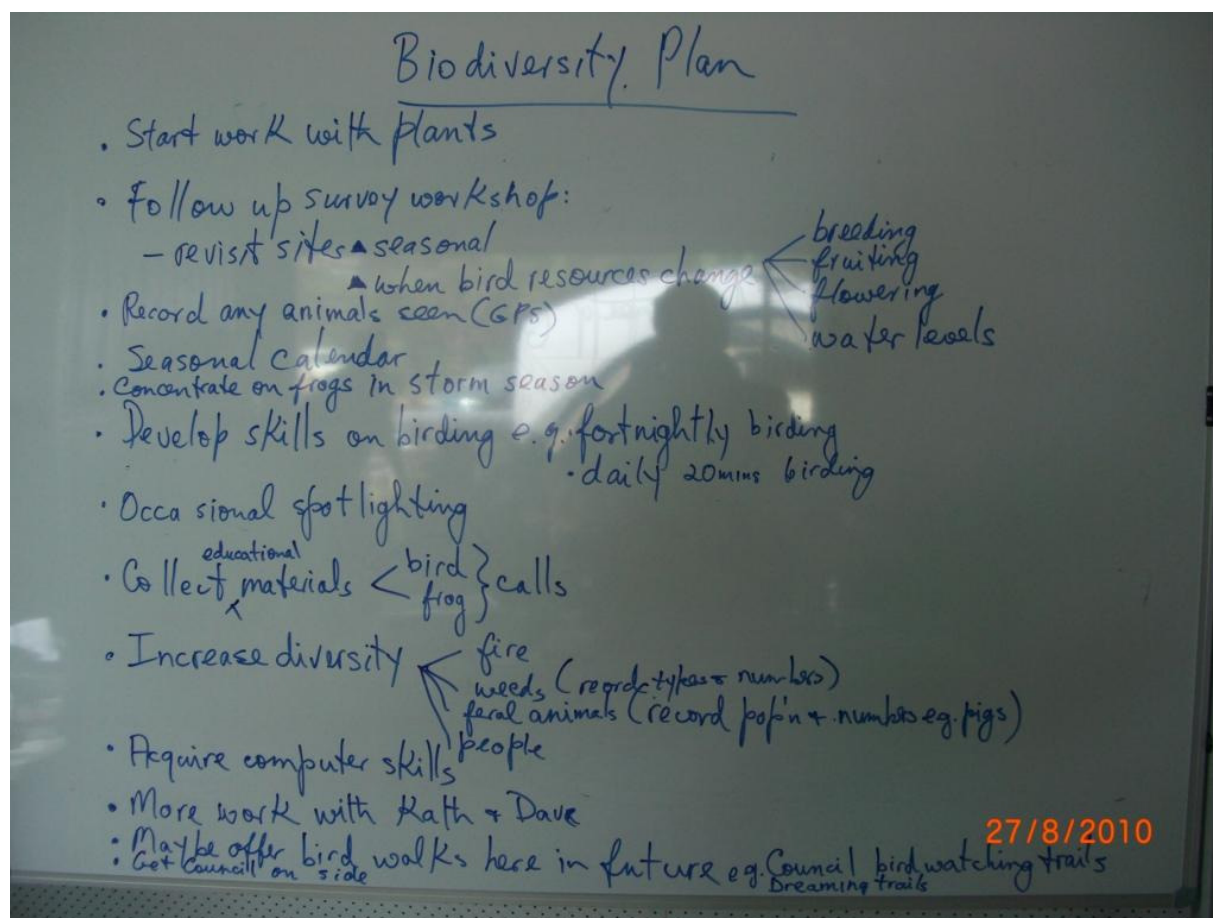 Biodiversity Plan
• Start work with plants
• Follow up survey workshop:
– revisit sites ▲ seasonal
▲ when bird resources change < breeding
fruiting
flowering
water levels
• Record any animals seen (GPS)
• Seasonal calendar
• Concentrate on frogs in storm season
• Develop skills on birding e.g. fortnightly birding
• daily 20mins birding
• Occasional spotlighting
• Collect educational materials < bird frog } calls
• Increase diversity < fire
weeds (record types + numbers)
feral animals (record pop'n + numbers eg. pigs)
people
• Acquire computer skills
• More work with Kath + Dave
• Maybe offer bird walks here in future eg. Council bird watching trails
Dreaming trails
• Get Council on side
27/8/2010